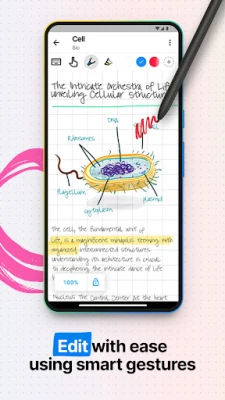 Cell
Bio
The Intricate Orchestra of Life
Unveiling Cellular Structure
DNA
Ribosomes
Flagellum
cytoplasm
plasmid
The cell, the fundamental unit of
life, is a magnificent
teeming with
organized interconnected structures.
understanding its architecture is crucial
to deciphering the intricate dance of life
100%
Nucleus: The Control Center At the heart
Edit with ease
using smart gestures